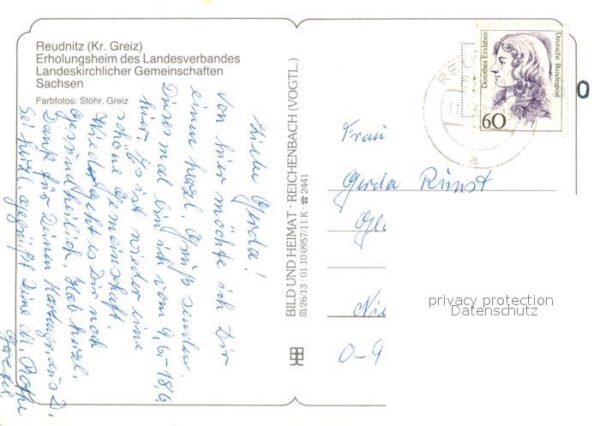 Reudnitz (Kr. Greiz)
Erholungsheim des Landesverbandes
Landeskirchlicher Gemeinschaften
Sachsen
Farbfotos: Stöhr, Greiz
Liebe Gerda!
Von hier möchte ich Dir
einen herzl. Gruß senden.
Dieses mal bin ich vom 9.6.-18.6.
hier. Es ist wieder eine
schöne Gemeinschaft.
Wie geht es Dir noch
gesundheitlich. Hab herzl.
Dank für Deinen Kartengruß aus D.
Sei herzl. gegrüßt Deine M. Rothe
BILD UND HEIMAT · REICHENBACH (VOGTL.)
III/26/13 · 01 10 0957/11 K · ☎ 2441
Dorothea Erxleben
Deutsche Bundespost
60
a
Frau
Gerda Rünst
O-9
privacy protection
Datenschutz